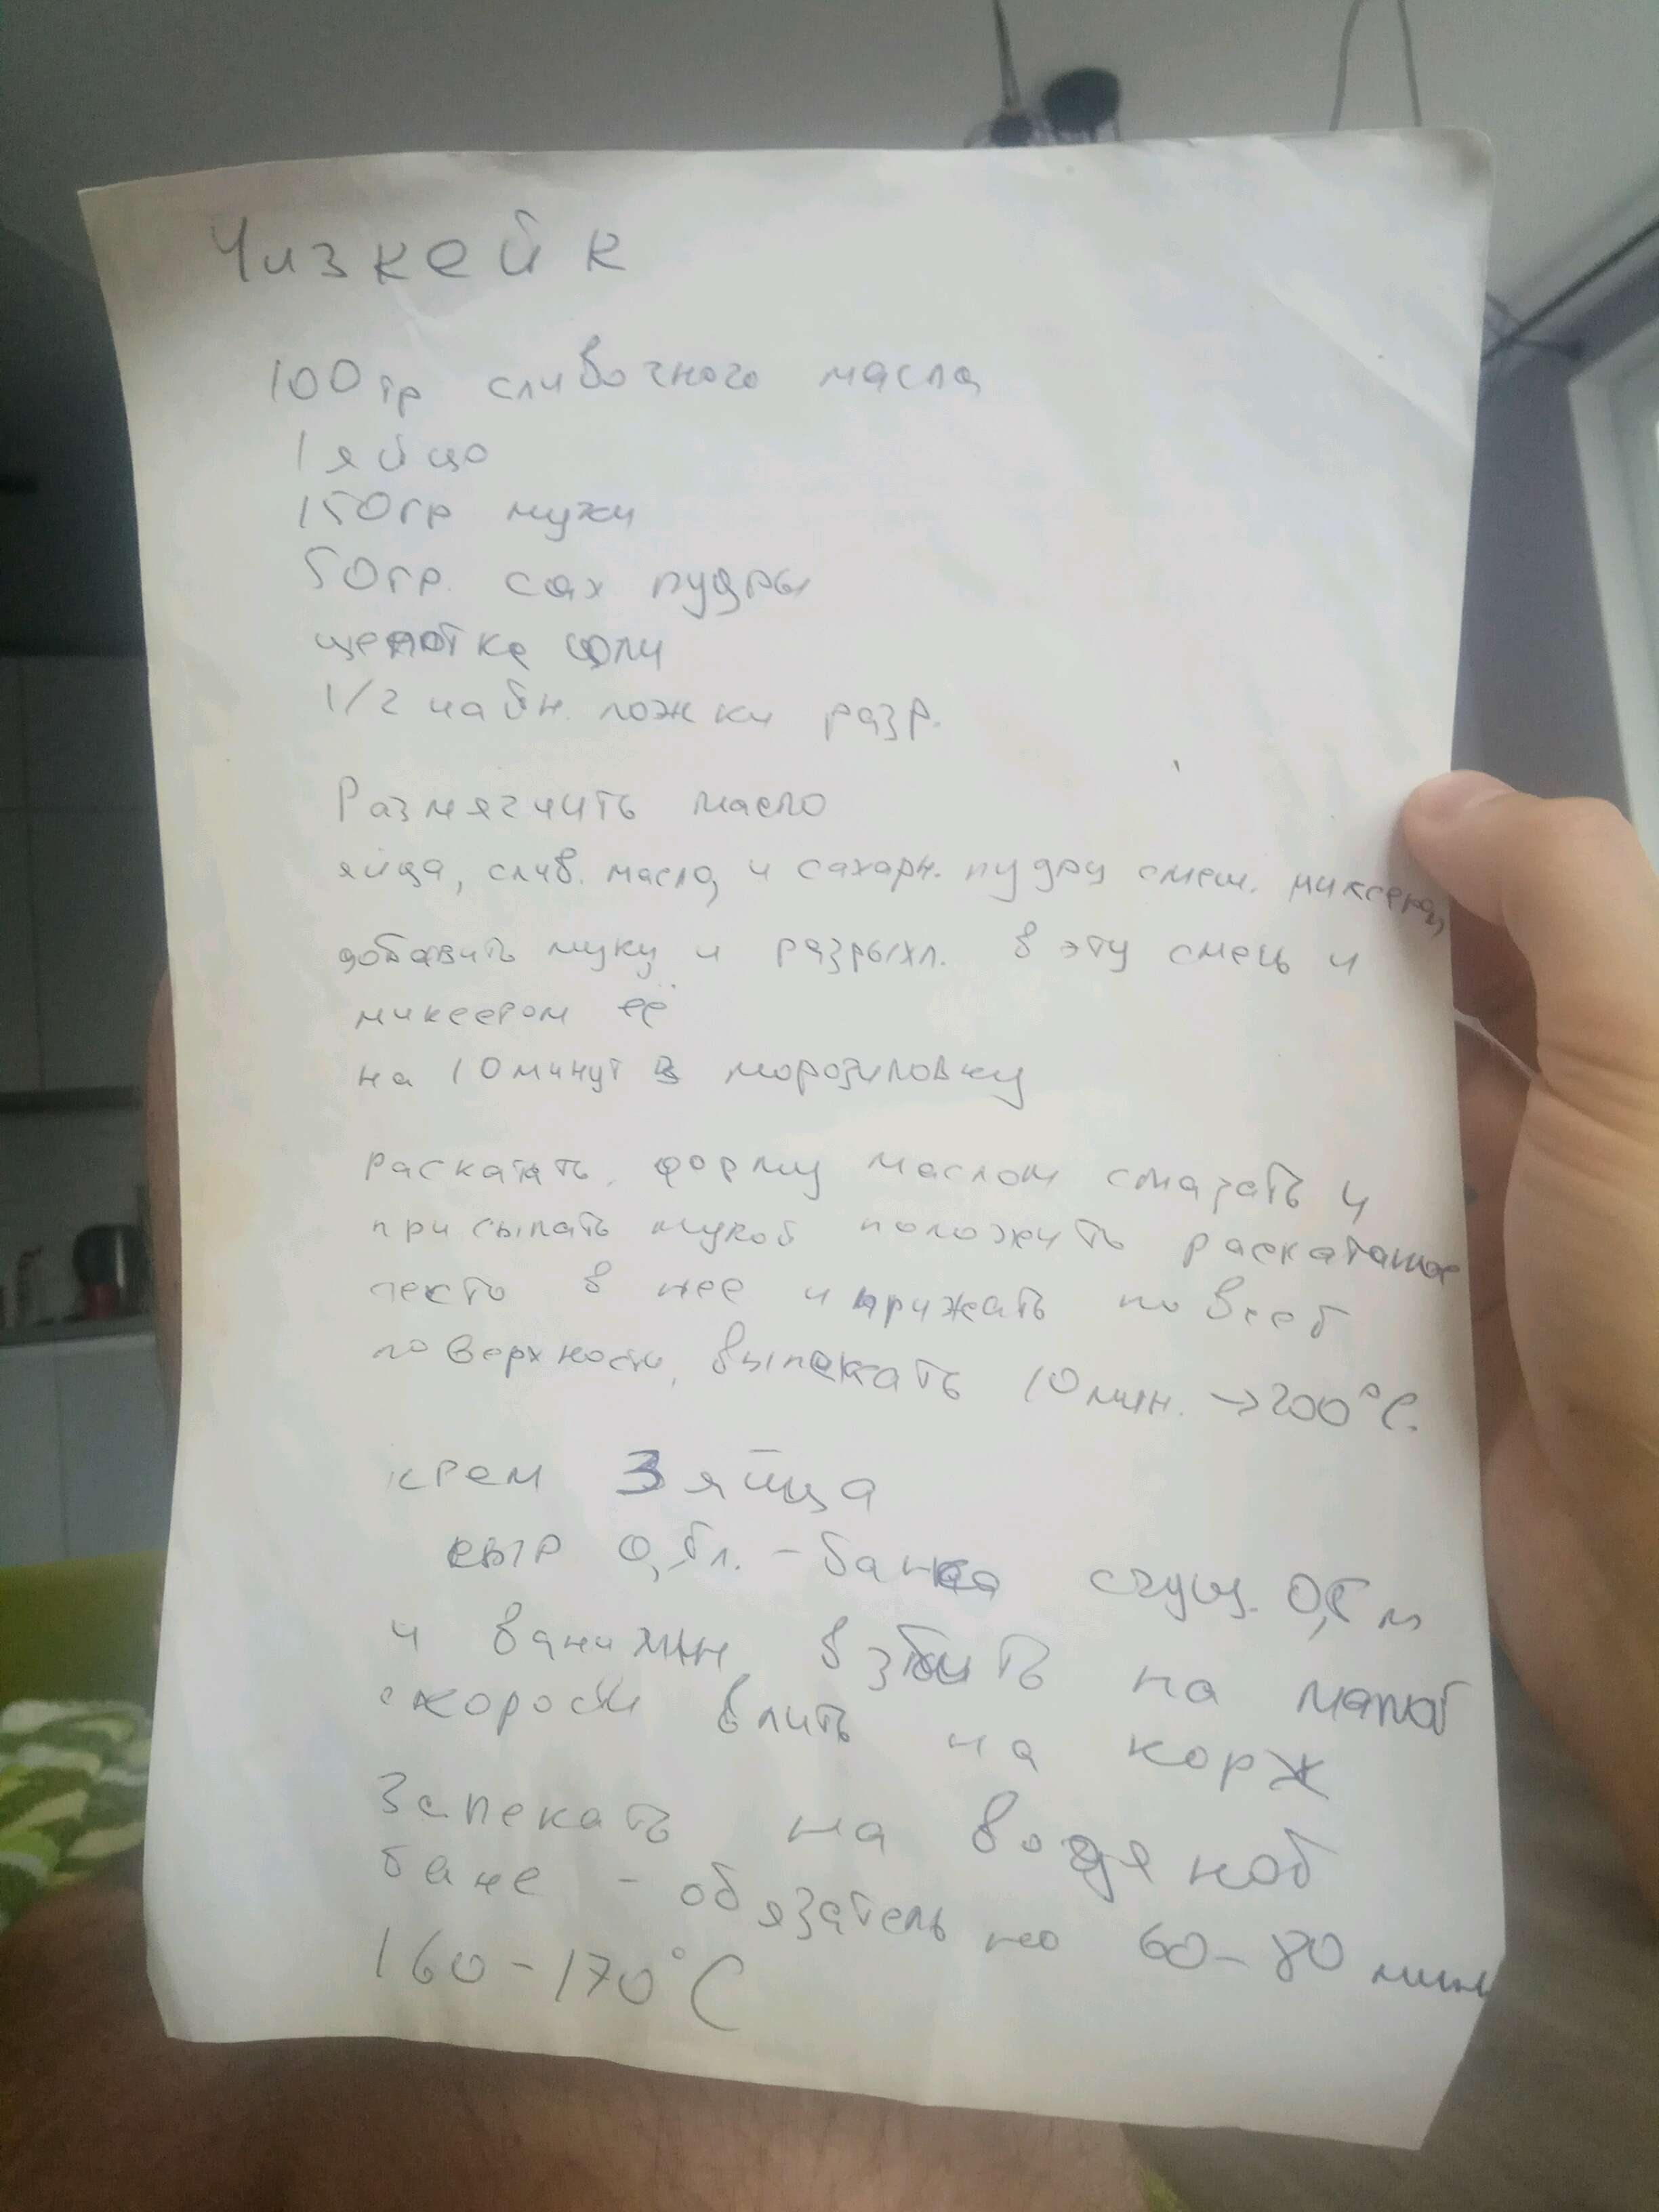 Чизкейк
100 гр сливочного масла
1 яйцо
150гр муки
50гр. сах пудры
щепотка соли
1/2 чайн. ложки разр.
Размягчить масло
яйца, слив. масло, и сахарн. пудру смеш. миксера,
добавить муку и разрыхл. в эту смесь и
миксером её
на 10 минут в морозиловку
раскатать. форму маслом смазать и
присыпать мукой положить раскатаное
тесто в нее и прижать по всей
поверхности, выпекать 10 мин. →200°C.
крем 3 яйца
сыр 0,5л. - банка сгущ. 0,5 л
и ванилин взбить на малой
скорости влить на корж
Запекать на водяной
бане - обязательно 60-80 мин
160-170°C